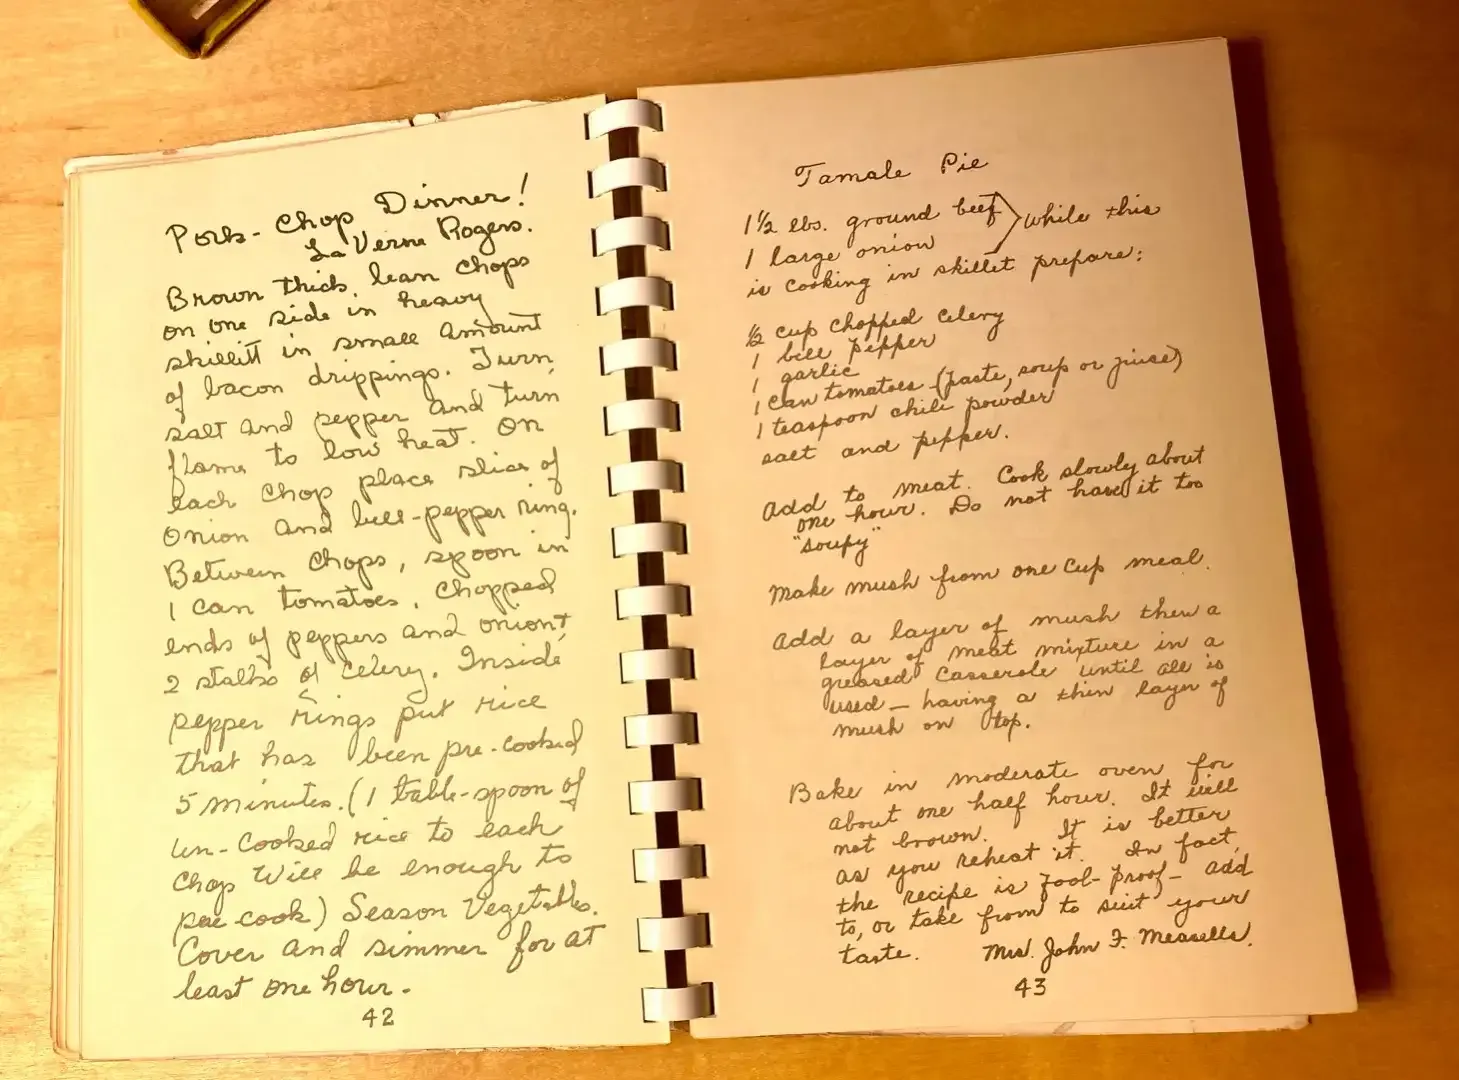 Pork-Chop Dinner!
La Verne Rogers.
Brown thick, lean chops
on one side in heavy
skillitt in small amount
of bacon drippings. Turn,
salt and pepper and turn
flame to low heat. On
each chop place slice of
onion and bell-pepper ring.
Between chops, spoon in
1 can tomatoes, chopped
ends of peppers and onions,
2 stalks of celery. Inside
pepper rings put rice
that has been pre-cooked
5 minutes. (1 table-spoon of
un-cooked rice to each
chop will be enough to
pre cook) Season vegetables.
Cover and simmer for at
least one hour.
42
Tamale Pie
1 1/2 lbs. ground beef
1 large onion
while this
is cooking in skillet prepare:
1/2 cup chopped celery
1 bell pepper
1 garlic
1 can tomatoes (paste, soup or juice)
1 teaspoon chili powder
salt and pepper.
Add to meat. Cook slowly about
one hour. Do not have it too
"soupy"
Make mush from one cup meal.
Add a layer of mush then a
layer of meat mixture in a
greased casserole until all is
used — having a thin layer of
mush on top.
Bake in moderate oven for
about one half hour. It will
not brown. It is better
as you reheat it. In fact,
the recipe is fool-proof — add
to, or take from to suit your
taste. Mrs. John F. Measells.
43